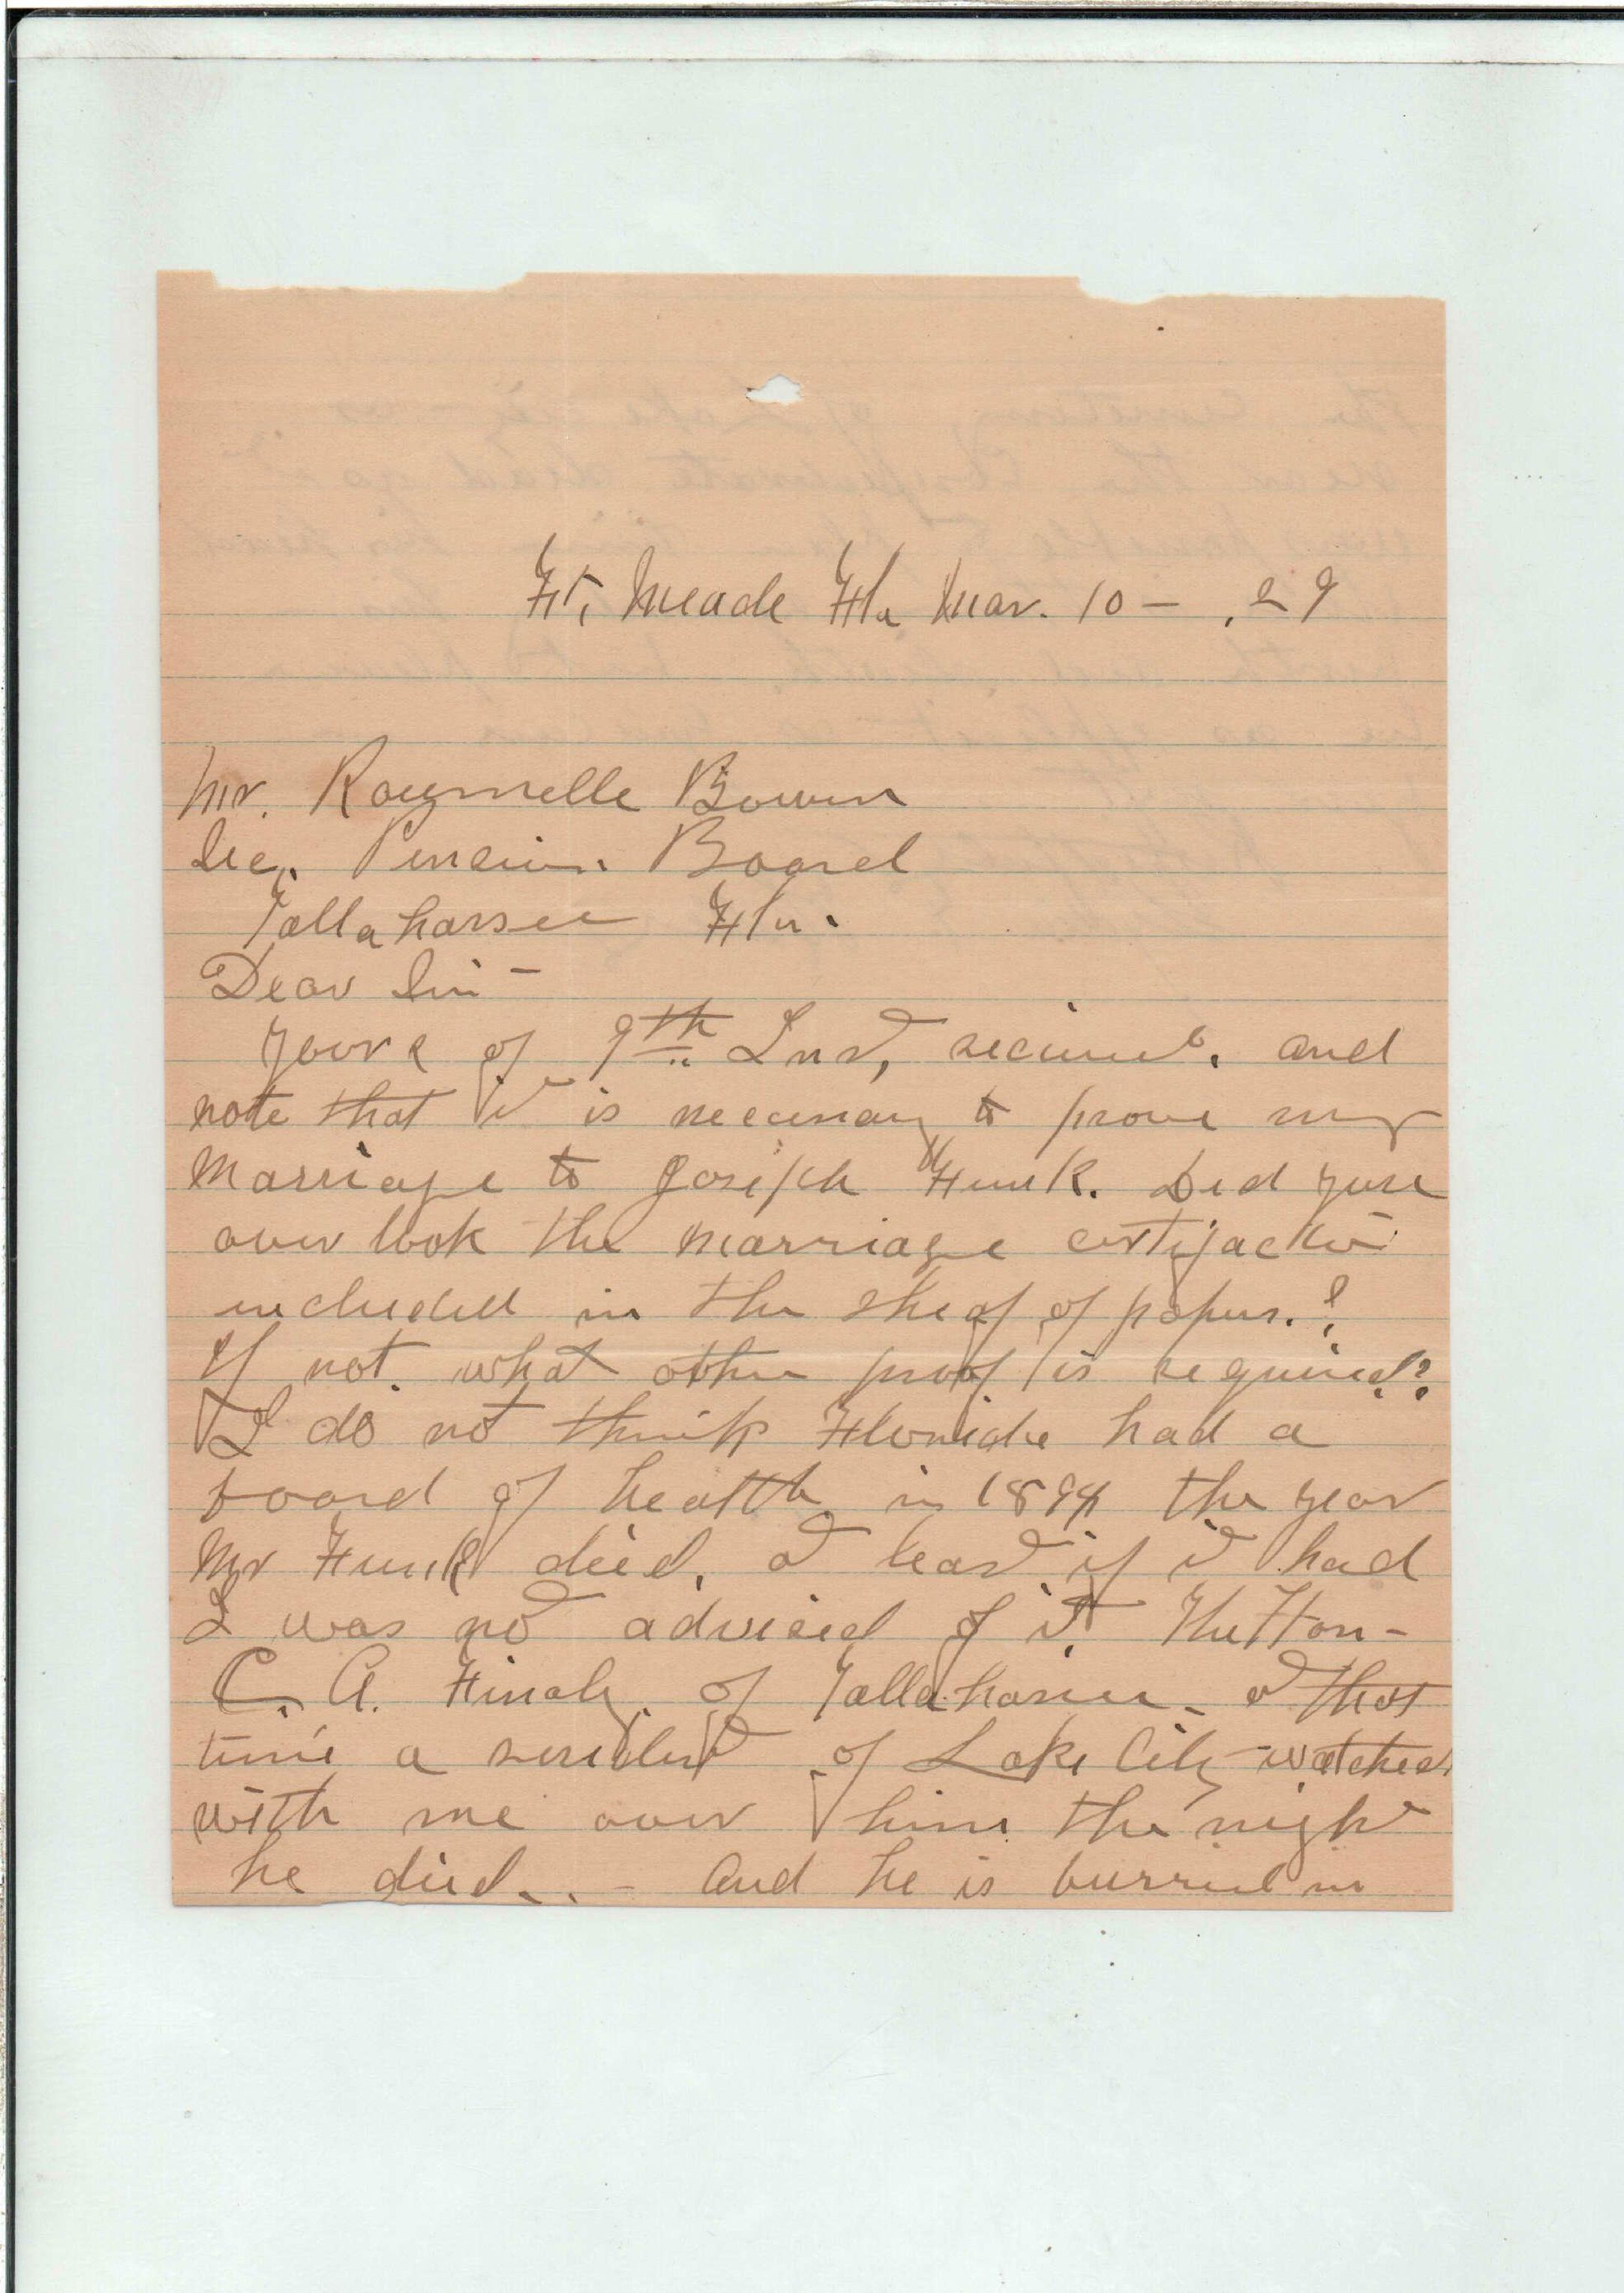 Ft, Meade Fla Mar. 10 - , 29
Mr. Raymelle Bowen
Sec. Pension Board
Tallahassee Fla.
Dear Sir -
yours of 9th Inst, received, and
note that it is necessary to prove my
marriage to Joseph Funk. Did you
over look the marriage
included in the sheaf of papers.?
If not, what other proof is required?
I do not think Floridia had a
board of health in 1894 the year
Mr Funk died, at least if it had
I was not advised of it. The Hon-
C. A. Finaly, of Tallahassee - at that
time a resident of Lake City - watched
with me over him the night
he died.. - And he is burried in